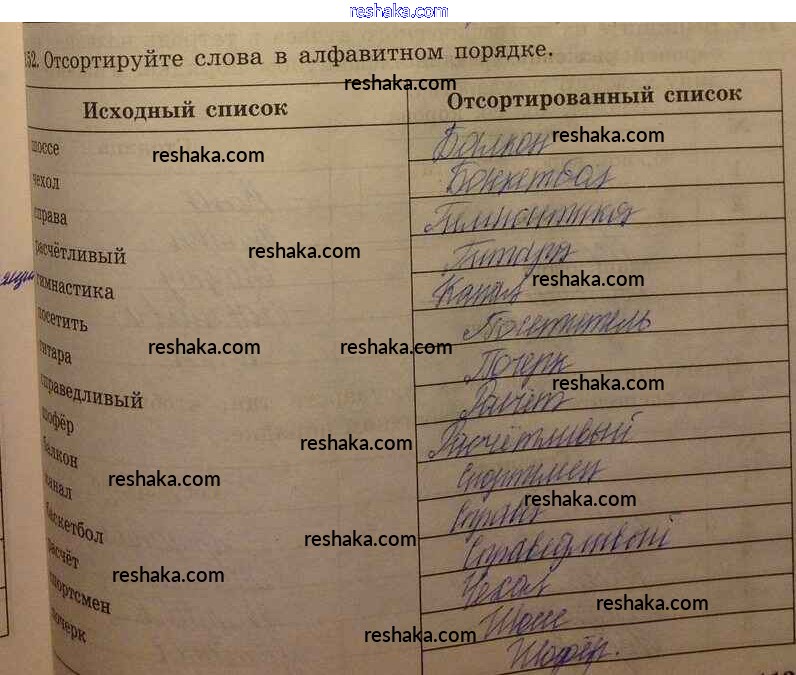 reshaka.com
152. Отсортируйте слова в алфавитном порядке.
reshaka.com
Исходный список
Отсортированный список
шоссе
reshaka.com
Балкон
reshaka.com
чехол
Баскетбол
справа
Гимнастика
расчётливый
reshaka.com
Гитара
гимнастика
Канал
reshaka.com
посетить
Посетитель
гитара
reshaka.com
reshaka.com
Почерк
справедливый
reshaka.com
Расчёт
шофёр
reshaka.com
Расчётливый
балкон
Спортсмен
канал
reshaka.com
reshaka.com
Справа
баскетбол
reshaka.com
reshaka.com
Справедливый
расчёт
reshaka.com
Чехол
спортсмен
reshaka.com
Шоссе
почерк
reshaka.com
Шофёр.